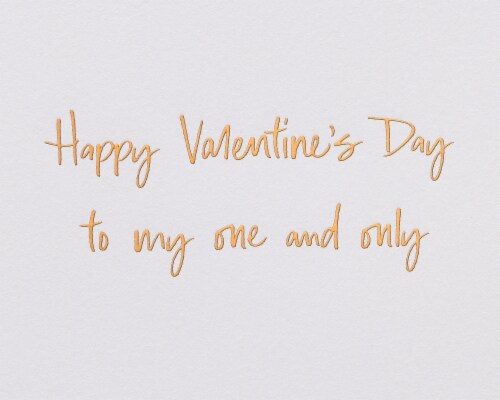 Happy Valentine's Day
to my one and only